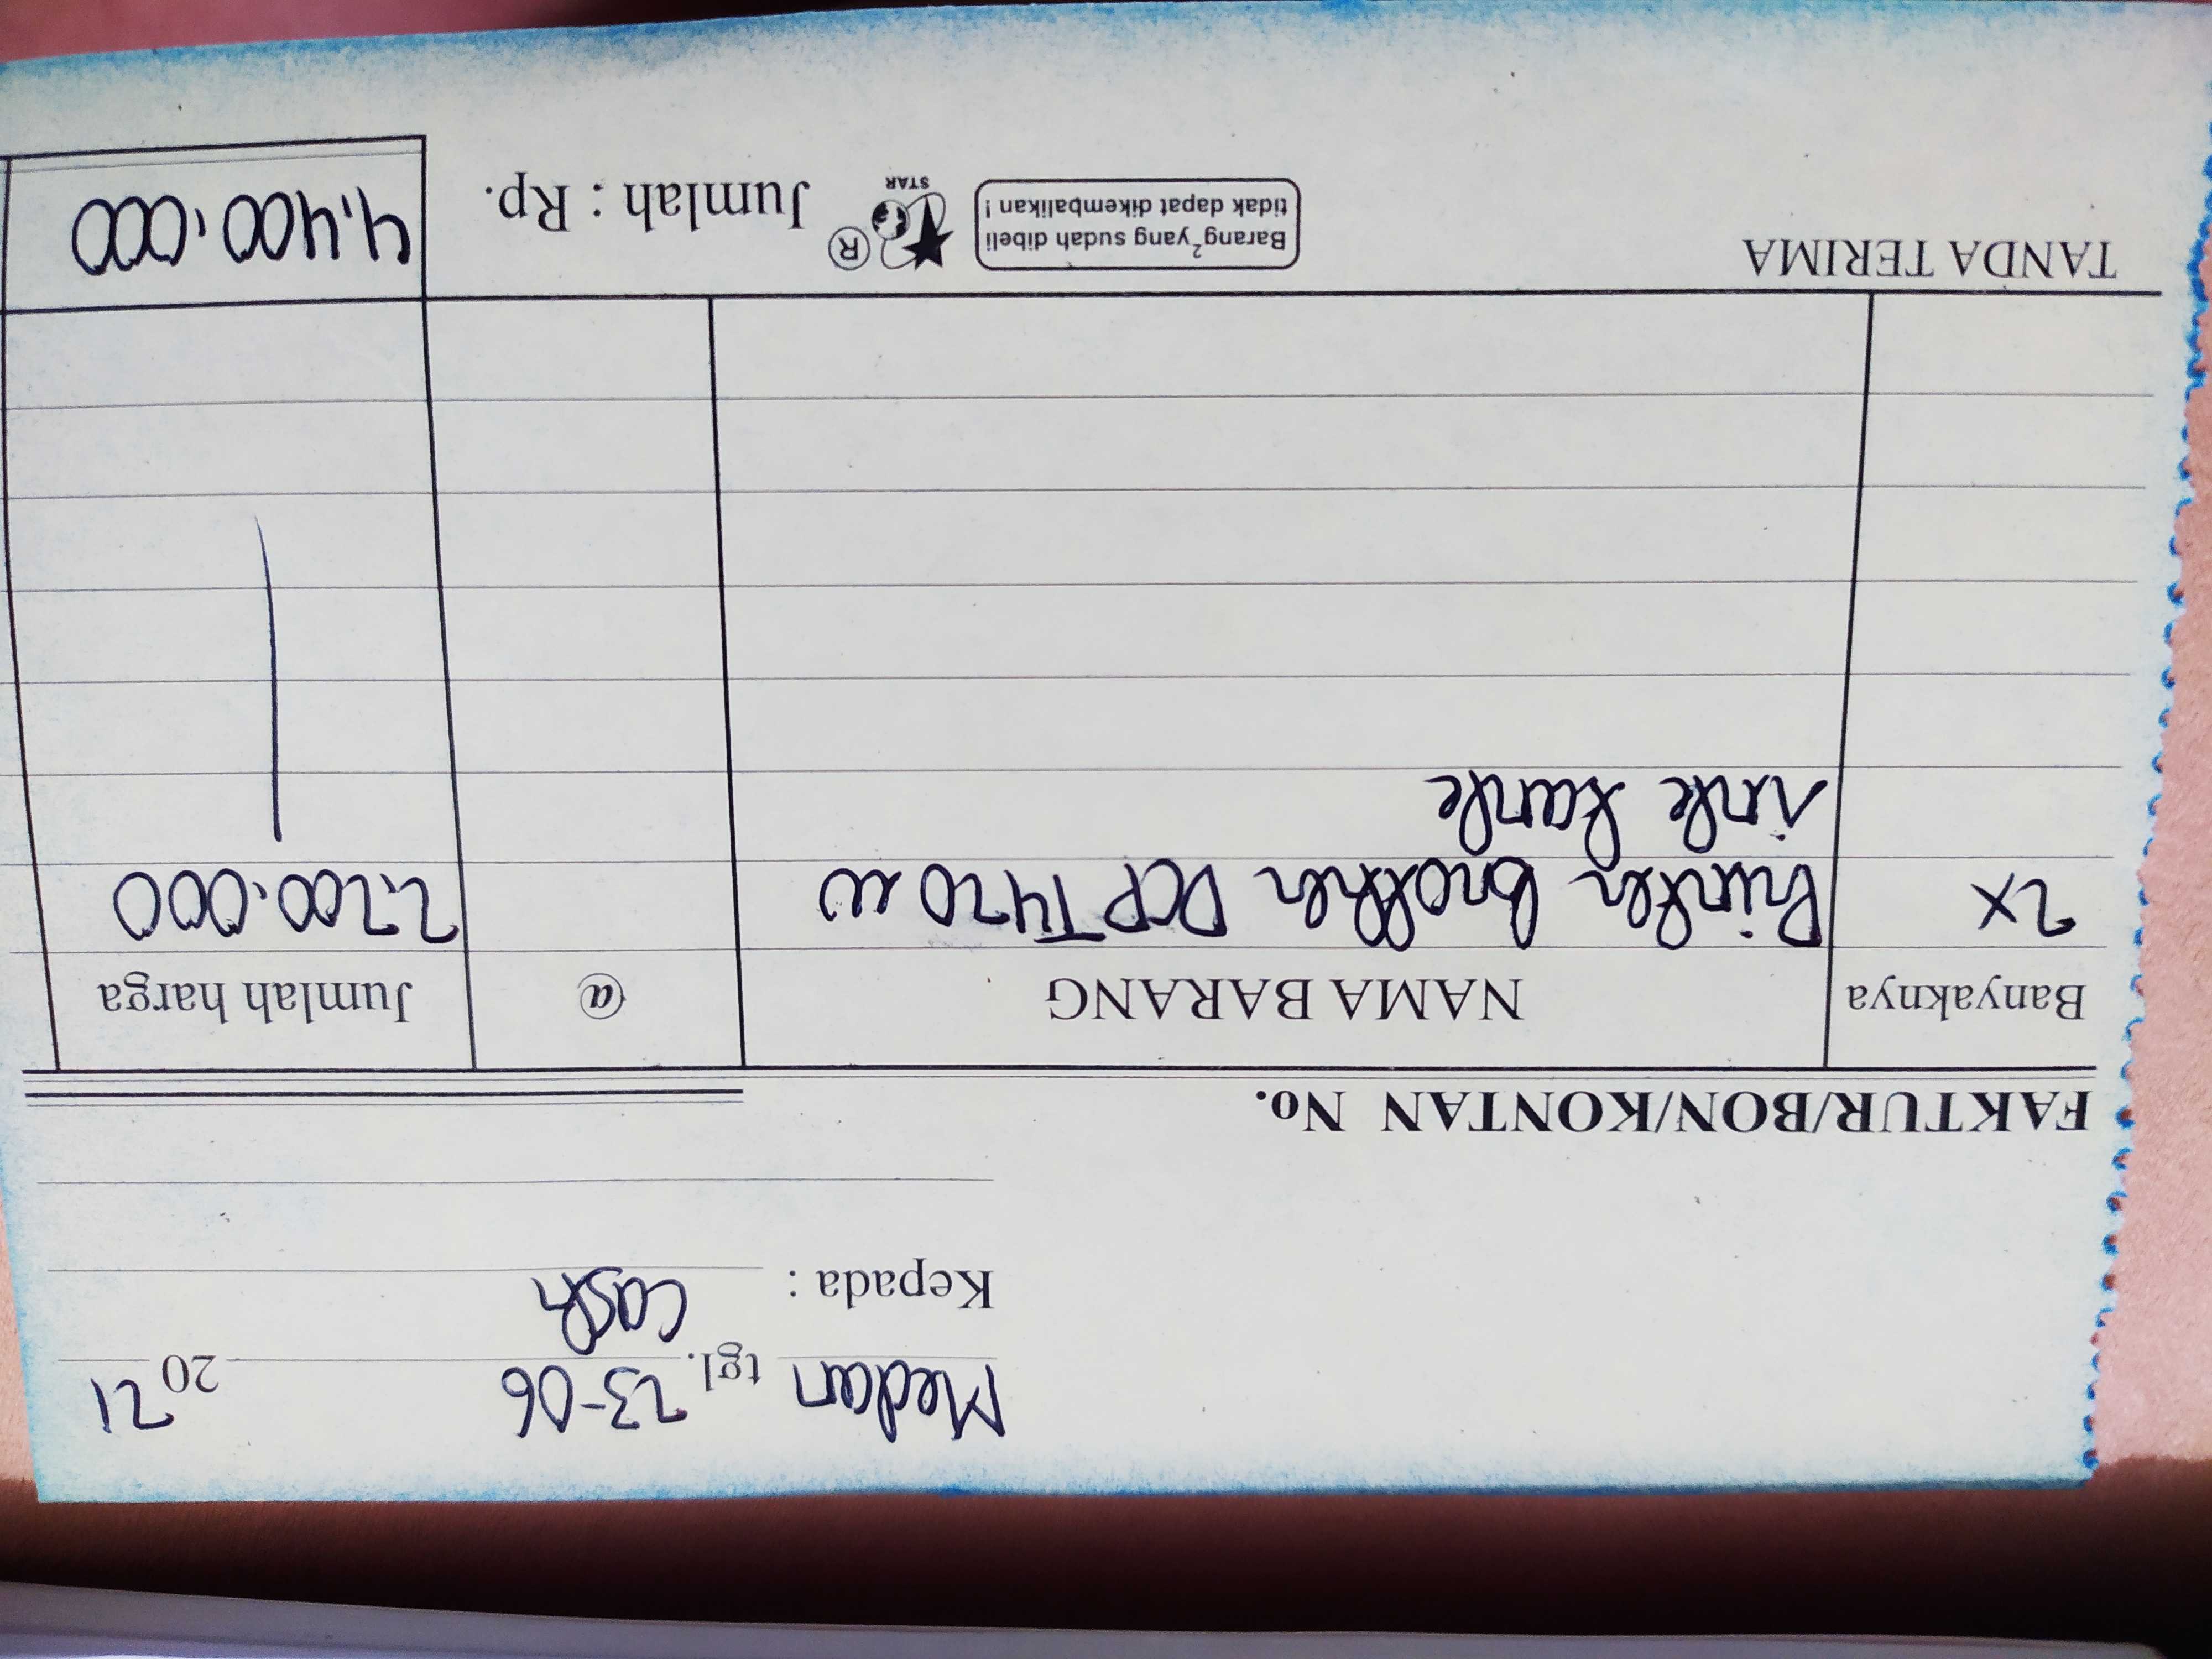 Medan tgl. 23-06 2021
Kepada : Cash
FAKTUR/BON/KONTAN No.
Banyaknya NAMA BARANG @ Jumlah harga
2x Printer Brother DCP T420 W 2.200.000
ink tank
TANDA TERIMA
Barang² yang sudah dibeli
tidak dapat dikembalikan !
® STAR
Jumlah : Rp. 4.400.000